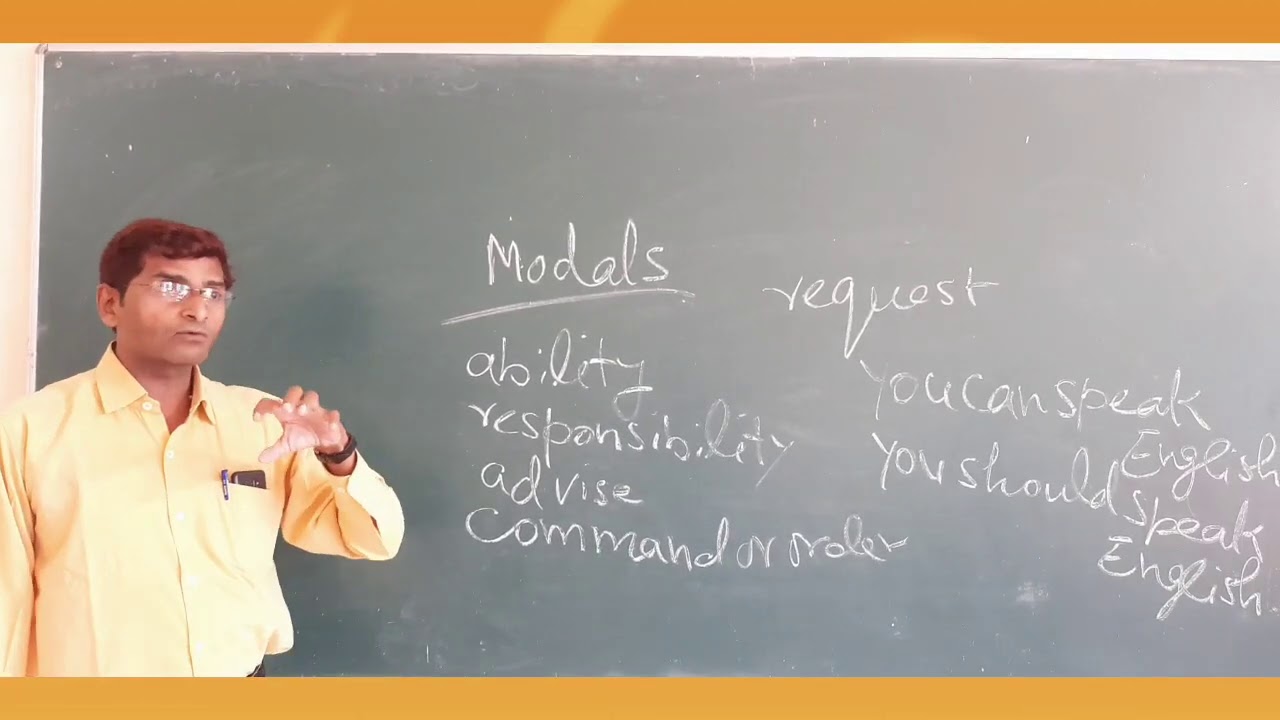 Modals
request
ability
responsibility
advise
command or order
You can speak
English
You should speak
English